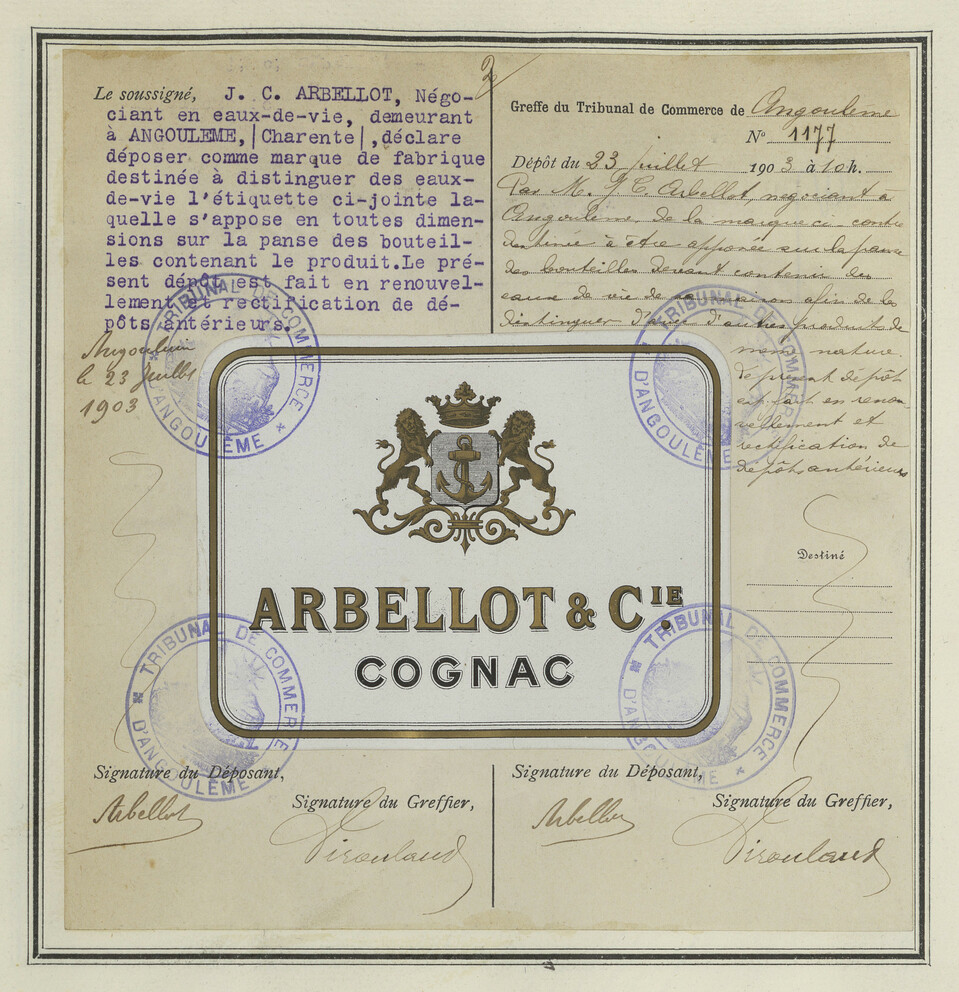 2
Le soussigné, J. C. ARBELLOT, Négo-
ciant en eaux-de-vie, demeurant
à ANGOULEME,|Charente|,déclare
déposer comme marque de fabrique
destinée à distinguer des eaux-
de-vie l'étiquette ci-jointe la-
quelle s'appose en toutes dimen-
sions sur la panse des bouteil-
les contenant le produit.Le pré-
sent dépôt est fait en renouvel-
lement et rectification de dé-
pôts antérieurs.
Angoulême
le 23 Juillet
1903
Greffe du Tribunal de Commerce de Angoulême
N° 1177
Dépôt du 23 juillet 1903 à 10 h.
Par M. J. C. Arbellot, négociant à
Angoulême, de la marque ci-contre
destinée à être apposée sur la panse
des bouteilles devant contenir des
eaux de vie de sa maison afin de les
distinguer d'avec d'autres produits de
même nature.
Le présent dépôt
est fait en renou-
vellement et
rectification de
dépôts antérieurs
Destiné
ARBELLOT & CIE.
COGNAC
TRIBUNAL DE COMMERCE D'ANGOULÊME
TRIBUNAL DE COMMERCE D'ANGOULÊME
TRIBUNAL DE COMMERCE D'ANGOULÊME
TRIBUNAL DE COMMERCE D'ANGOULÊME
Signature du Déposant,
Signature du Greffier,
Arbellot
Signature du Déposant,
Signature du Greffier,
Arbellot